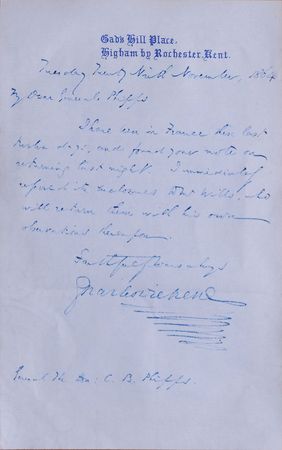 Gad's Hill Place,
Higham by Rochester, Kent.
Tuesday Twenty Ninth November, 1864
My Dear General Phipps
I have been in France these last
twelve days, and found your note on
returning last night. I immediately
referred its enclosures to Mr Wills, who
will return them with his own
observations thereupon.
Faithfully yours always
Charles Dickens
General The Hon: C. B. Phipps.